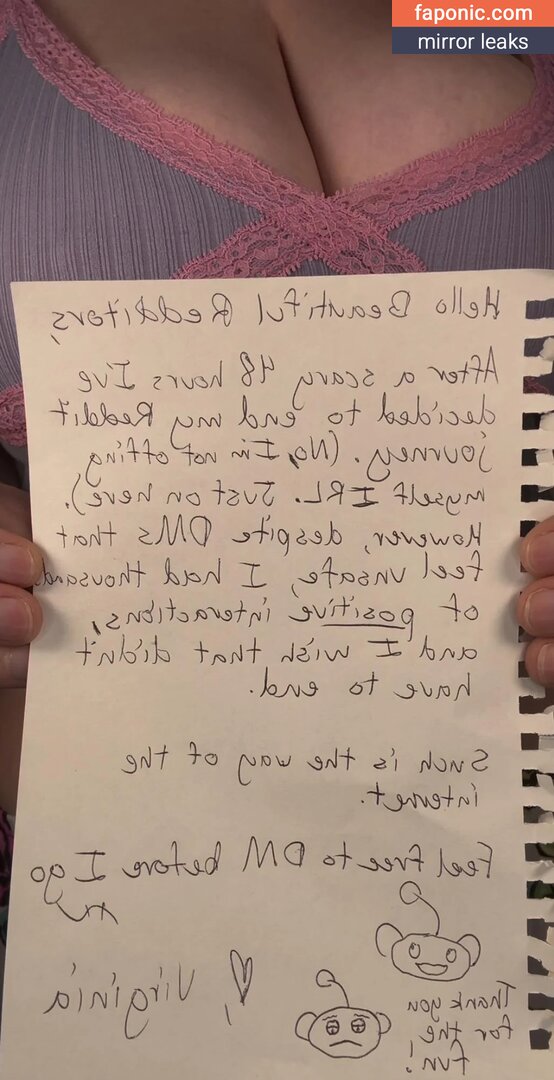 faponic.com
mirror leaks
Hello Beautiful Redditors,
After a scary 48 hours I've
decided to end my Reddit
journey. (No, I'm not offing
myself IRL. Just on here).
However, despite DMs that
feel unsafe, I had thousand
of positive interactions,
and I wish that didn't
have to end.
Such is the way of the
internet.
Feel free to DM before I go
Virginia
Thank you
for the
fun!